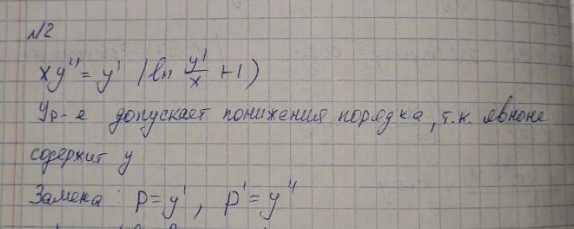 №2
xy'' = y' (ln y'/x + 1)
Ур-е допускает понижения порядка, т.к. явно не
содержит y
Замена: p = y', p' = y''